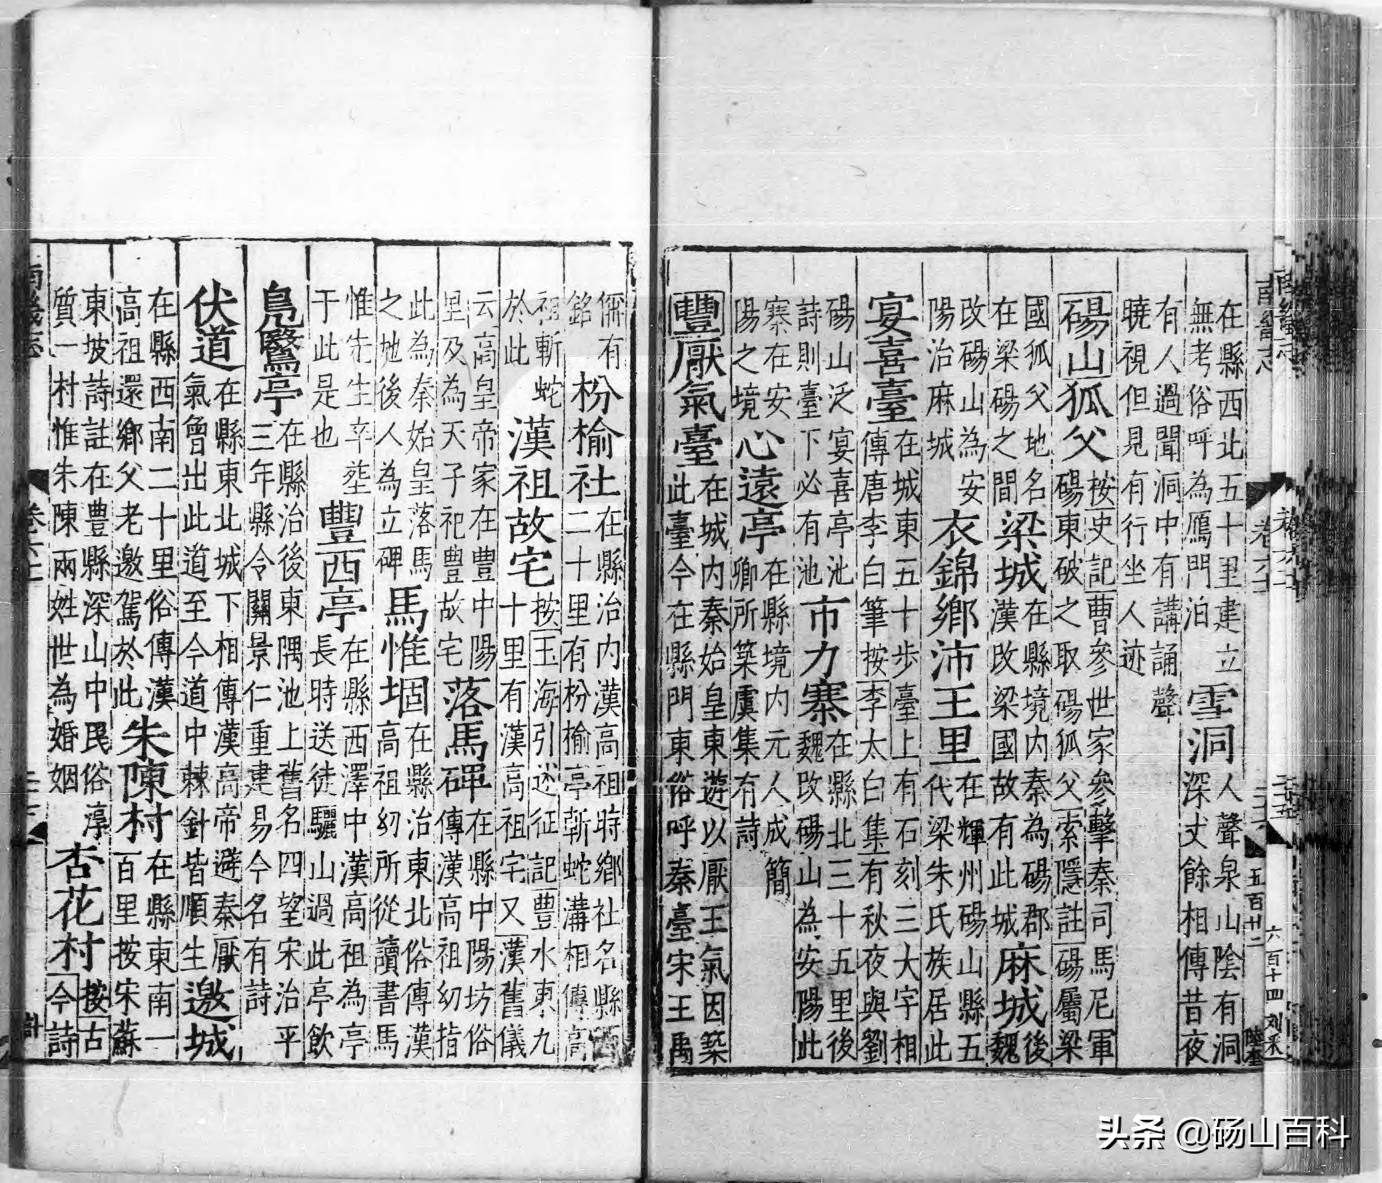 在縣西北五十里建立
無考俗呼為鴈門泊
雪洞
人聲泉山陰有洞
深丈餘相傳昔夜
有人過聞洞中有講誦聲
曉視但見有行坐人迹
碭山狐父
按史記曹參世家參擊秦司馬尼軍
碭東破之取碭狐父索隱註碭屬梁
國狐父地名
在梁碭之間
梁城
在縣境内秦為碭郡
漢改梁國故有此城
麻城
後
魏
改碭山為安
陽治麻城
衣錦鄉沛王里
在輝州碭山縣五
代梁朱氏族居此
宴喜臺
在城東五十步臺上有石刻三大字相
傳唐李白筆按李太白集有秋夜與劉
碭山泛宴喜亭池
詩則臺下必有池
市力寨
在縣北三十五里後
魏改碭山為安陽此
寨在安
陽之境
心遠亭
在縣境内元人成簡
卿所築虞集有詩
豐厭氣臺
在城内秦始皇東遊以厭王氣因築
此臺今在縣門東俗呼秦臺宋王禹
偁有
銘
枌榆社
在縣治内漢高祖時鄉社名縣
二十里有枌榆亭斬蛇溝相傳高
祖斬蛇
於此
漢祖故宅
按玉海引述征記豐水東九
十里有漢高祖宅又漢舊儀
云高皇帝家在豐中陽
里及為天子祀豐故宅
落馬碑
在縣中陽坊俗
傳漢高祖幼指
此為秦始皇落馬
之地後人為立碑
馬惟堌
在縣治東北俗傳漢
高祖幼所從讀書馬
惟先生卒塟
于此是也
豐西亭
在縣西澤中漢高祖為亭
長時送徒驪山過此亭飲
鳧鷖亭
在縣治後東隅池上舊名四望宋治平
三年縣令關景仁重建易今名有詩
伏道
在縣東北城下相傳漢高帝避秦厭
氣曾出此道至今道中棘針皆順生
邀城
在縣西南二十里俗傳漢
高祖還鄉父老邀駕於此
朱陳村
在縣東南一
百里按宋蘇
東坡詩註在豐縣深山中民俗淳
質一村惟朱陳兩姓世為婚姻
杏花村
按古
今詩
头条 @砀山百科